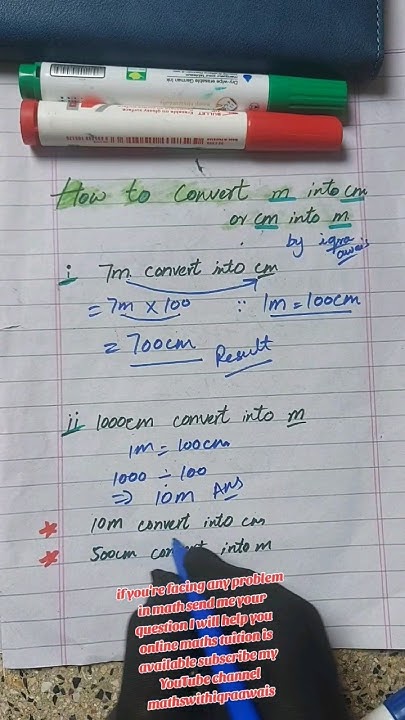 Dry-wipe erasable German ink
BULLET Erasable on glossy surface
How to convert m into cm
or cm into m
by iqra
awais
i 7m convert into cm
= 7m × 100 ∵ 1m = 100cm
= 700cm Result
ii 1000cm convert into m
1m = 100cm
1000 ÷ 100
⇒ 10m Ans
* 10m convert into cm
* 500cm convert into m
if you're facing any problem
in math send me your
question I will help you
online maths tuition is
available subscribe my
YouTube channel
mathswithiqraawais